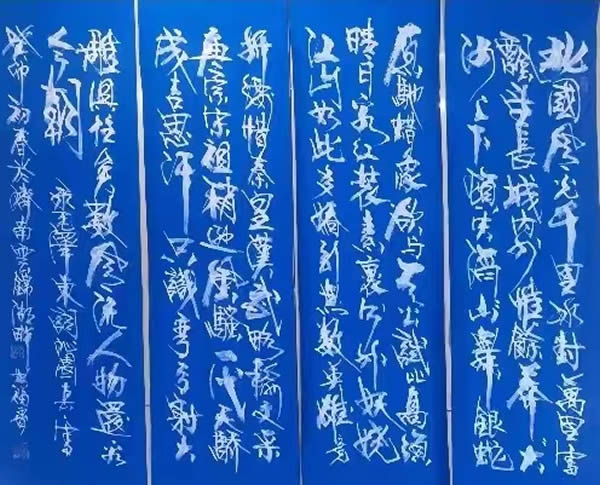 北國風光千里冰封萬里雪
飄望長城內外惟餘莽莽大
河上下頓失滔滔山舞銀蛇
原馳蜡象欲與天公試比高須
晴日看紅裝素裹分外妖嬈
江山如此多嬌引無數英雄竞
折腰惜秦皇漢武略輸文采
唐宗宋祖稍遜風騷一代天驕
成吉思汗只識彎弓射大
雕俱往矣數風流人物還看
今朝 毛澤東詞沁園春雪
癸卯初春於濟南雲錦湖畔